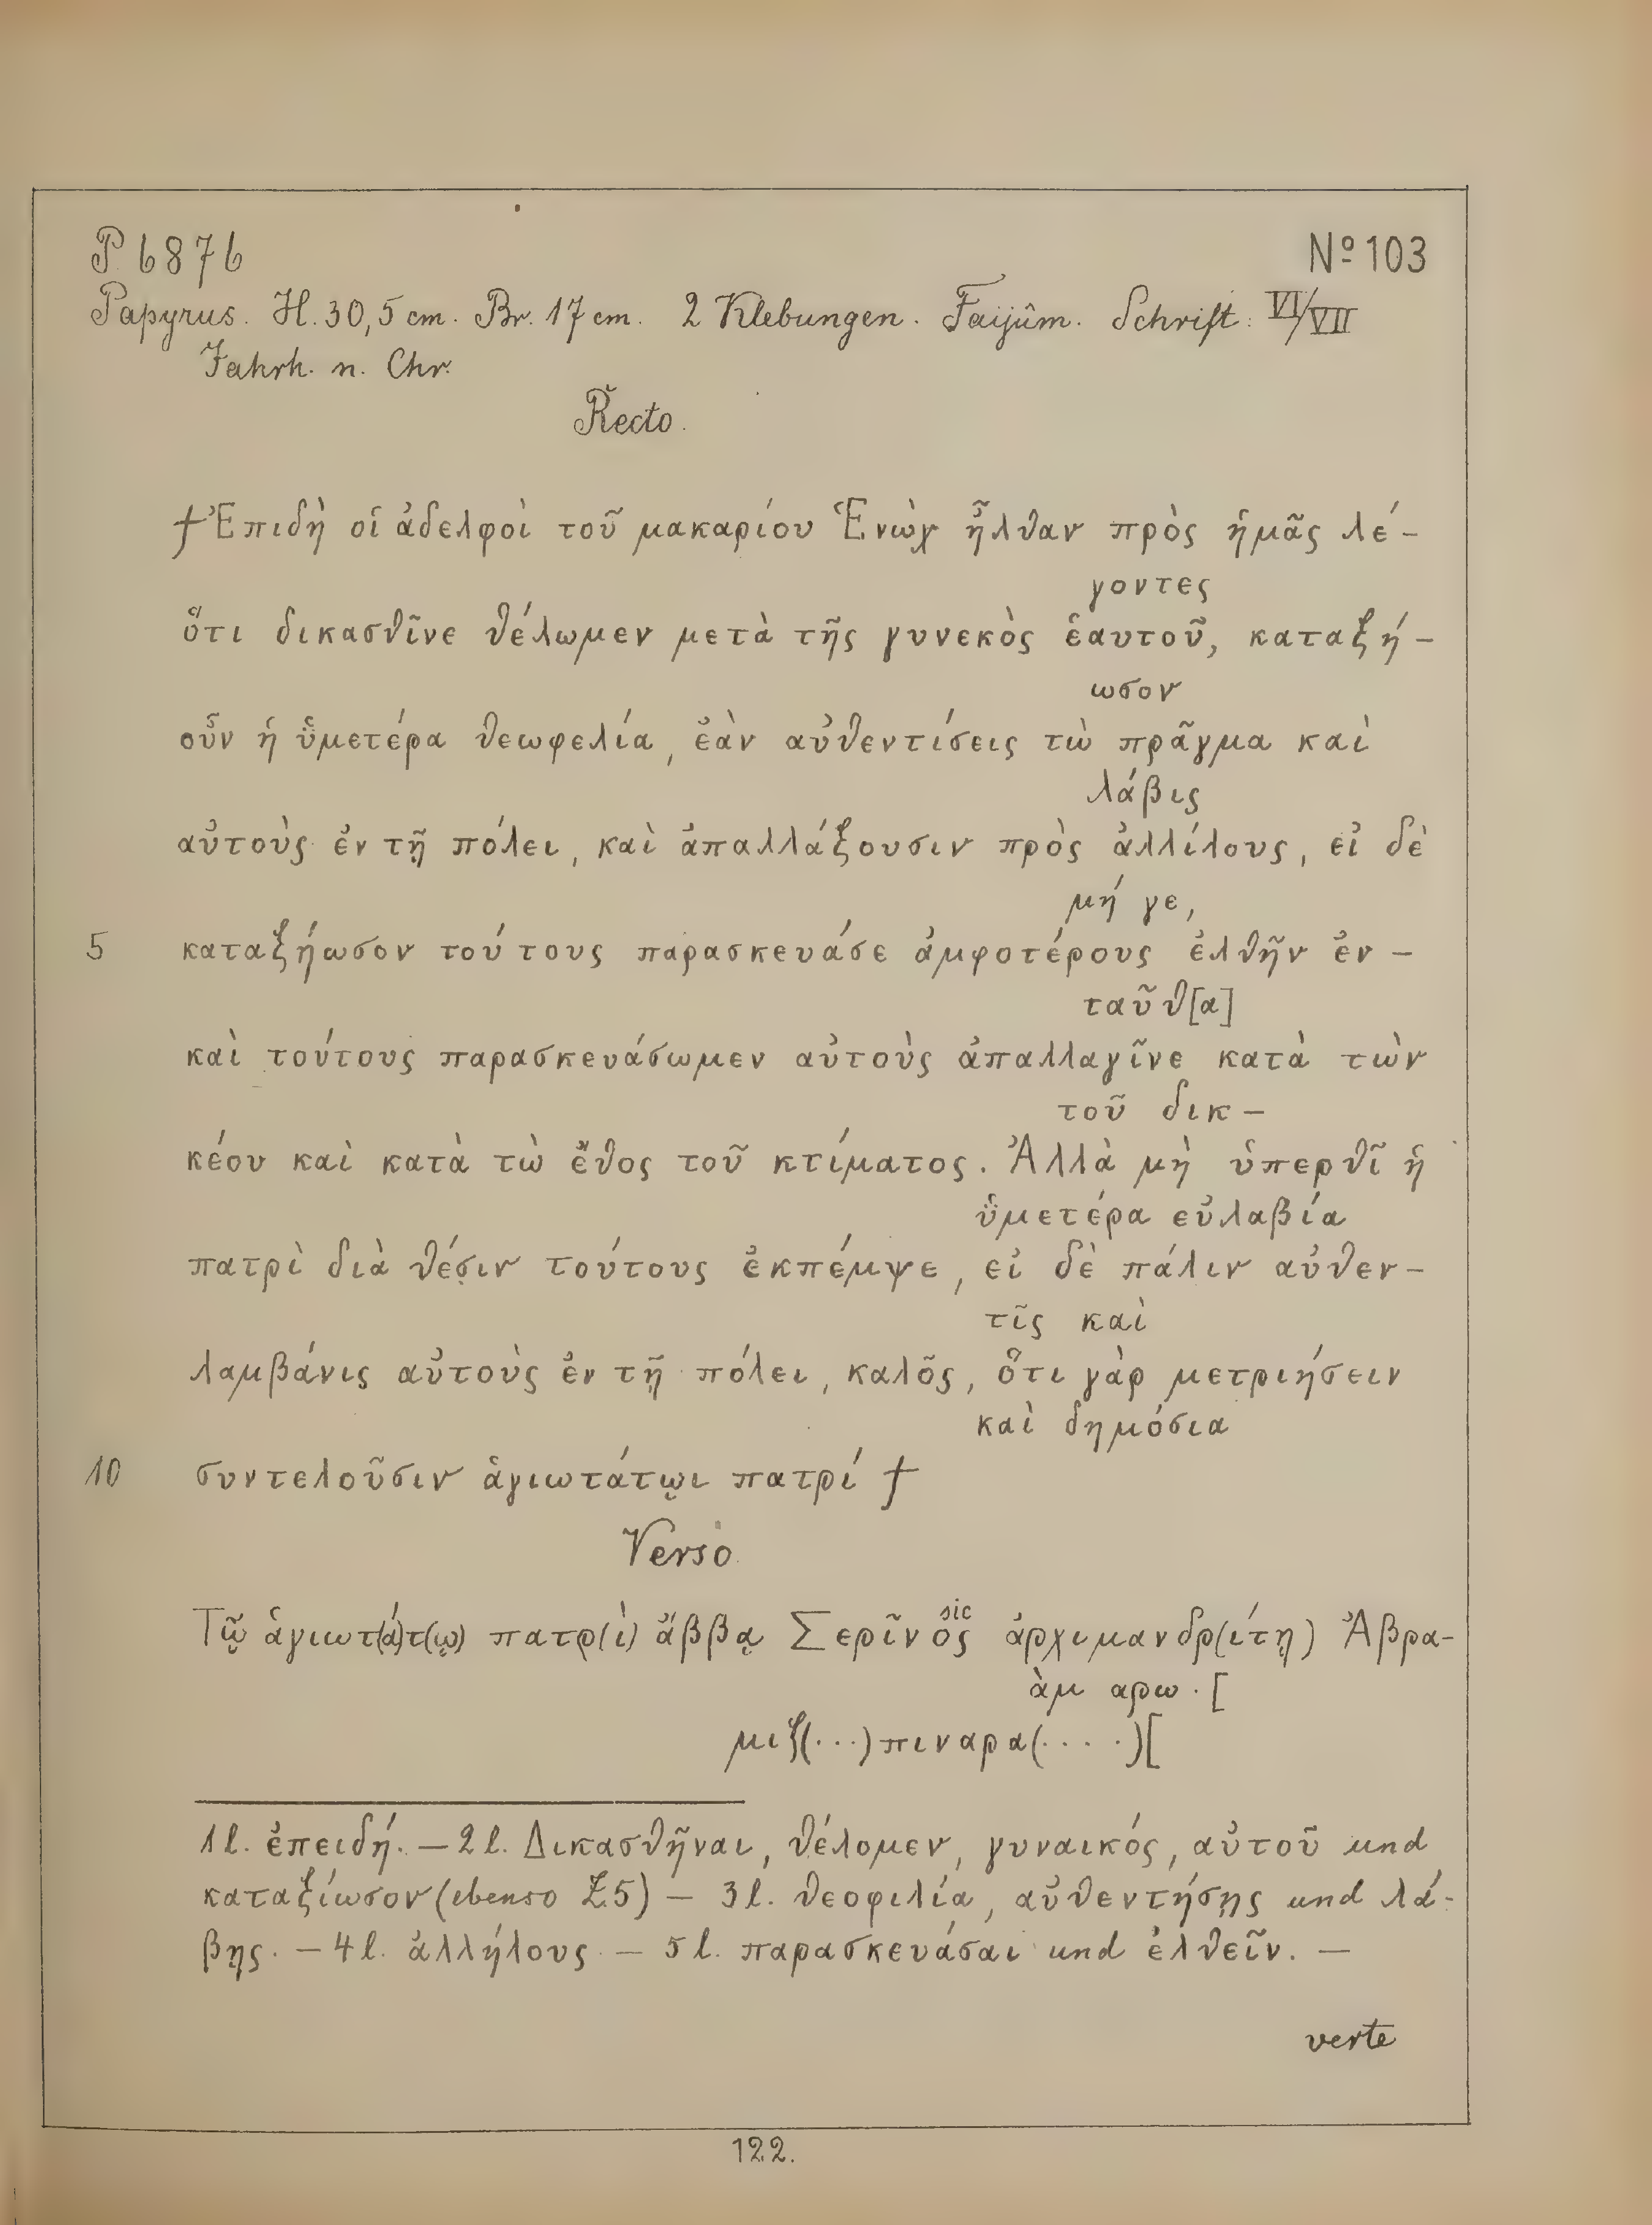 P 6876
Nº 103
Papyrus. H. 30,5 cm. Br. 17 cm. 2 Klebungen. Faijûm. Schrift: VI/VII
Jahrh. n. Chr.
Recto.
† Ἐπιδὴ οἱ ἀδελφοὶ τοῦ μακαρίου Ἑνὼχ ἦλθαν πρὸς ἡμᾶς λέ-
γοντες
ὅτι δικασθῖνε θέλωμεν μετὰ τῆς γυνεκὸς ἑαυτοῦ, καταξή-
ωσον
οὖν ἡ ὑμετέρα θεωφελία, ἐὰν αὐθεντίσεις τὼ πρᾶγμα καὶ
λάβις
αὐτοὺς ἐν τῇ πόλει, καὶ ἀπαλλάξουσιν πρὸς ἀλλίλους, εἰ δὲ
μή γε,
5 καταξήωσον τούτους παρασκευάσε ἀμφοτέρους ἐλθῆν ἐν-
ταῦθ[α]
καὶ τούτους παρασκευάσωμεν αὐτοὺς ἀπαλλαγῖνε κατὰ τὼν
τοῦ δικ-
κέου καὶ κατὰ τὼ ἔθος τοῦ κτίματος. Ἀλλὰ μὴ ὑπερθῖ ἡ
ὑμετέρα εὐλαβία
πατρὶ διὰ θέσιν τούτους ἐκπέμψε, εἰ δὲ πάλιν αὐθεν-
τῖς καὶ
λαμβάνις αὐτοὺς ἐν τῇ πόλει, καλõς, ὅτι γὰρ μετριήσειν
καὶ δημόσια
10 συντελοῦσιν ἁγιωτάτῳι πατρί †
Verso
Τῷ ἁγιωτ(ά)τ(ῳ) πατρ(ὶ) ἄββᾳ Σερῖνος sic ἀρχιμανδρ(ίτῃ) Ἀβρα-
ὰμ αρω . [
μιξ(...)πιναρα(....)[
1 l. ἐπειδή. — 2 l. Δικασθῆναι, θέλομεν, γυναικός, αὐτοῦ und
καταξίωσον (ebenso Z. 5) — 3 l. θεοφιλία, αὐθεντήσῃς und λά-
βῃς. — 4 l. ἀλλήλους — 5 l. παρασκευάσαι und ἐλθεῖν. —
verte
122.